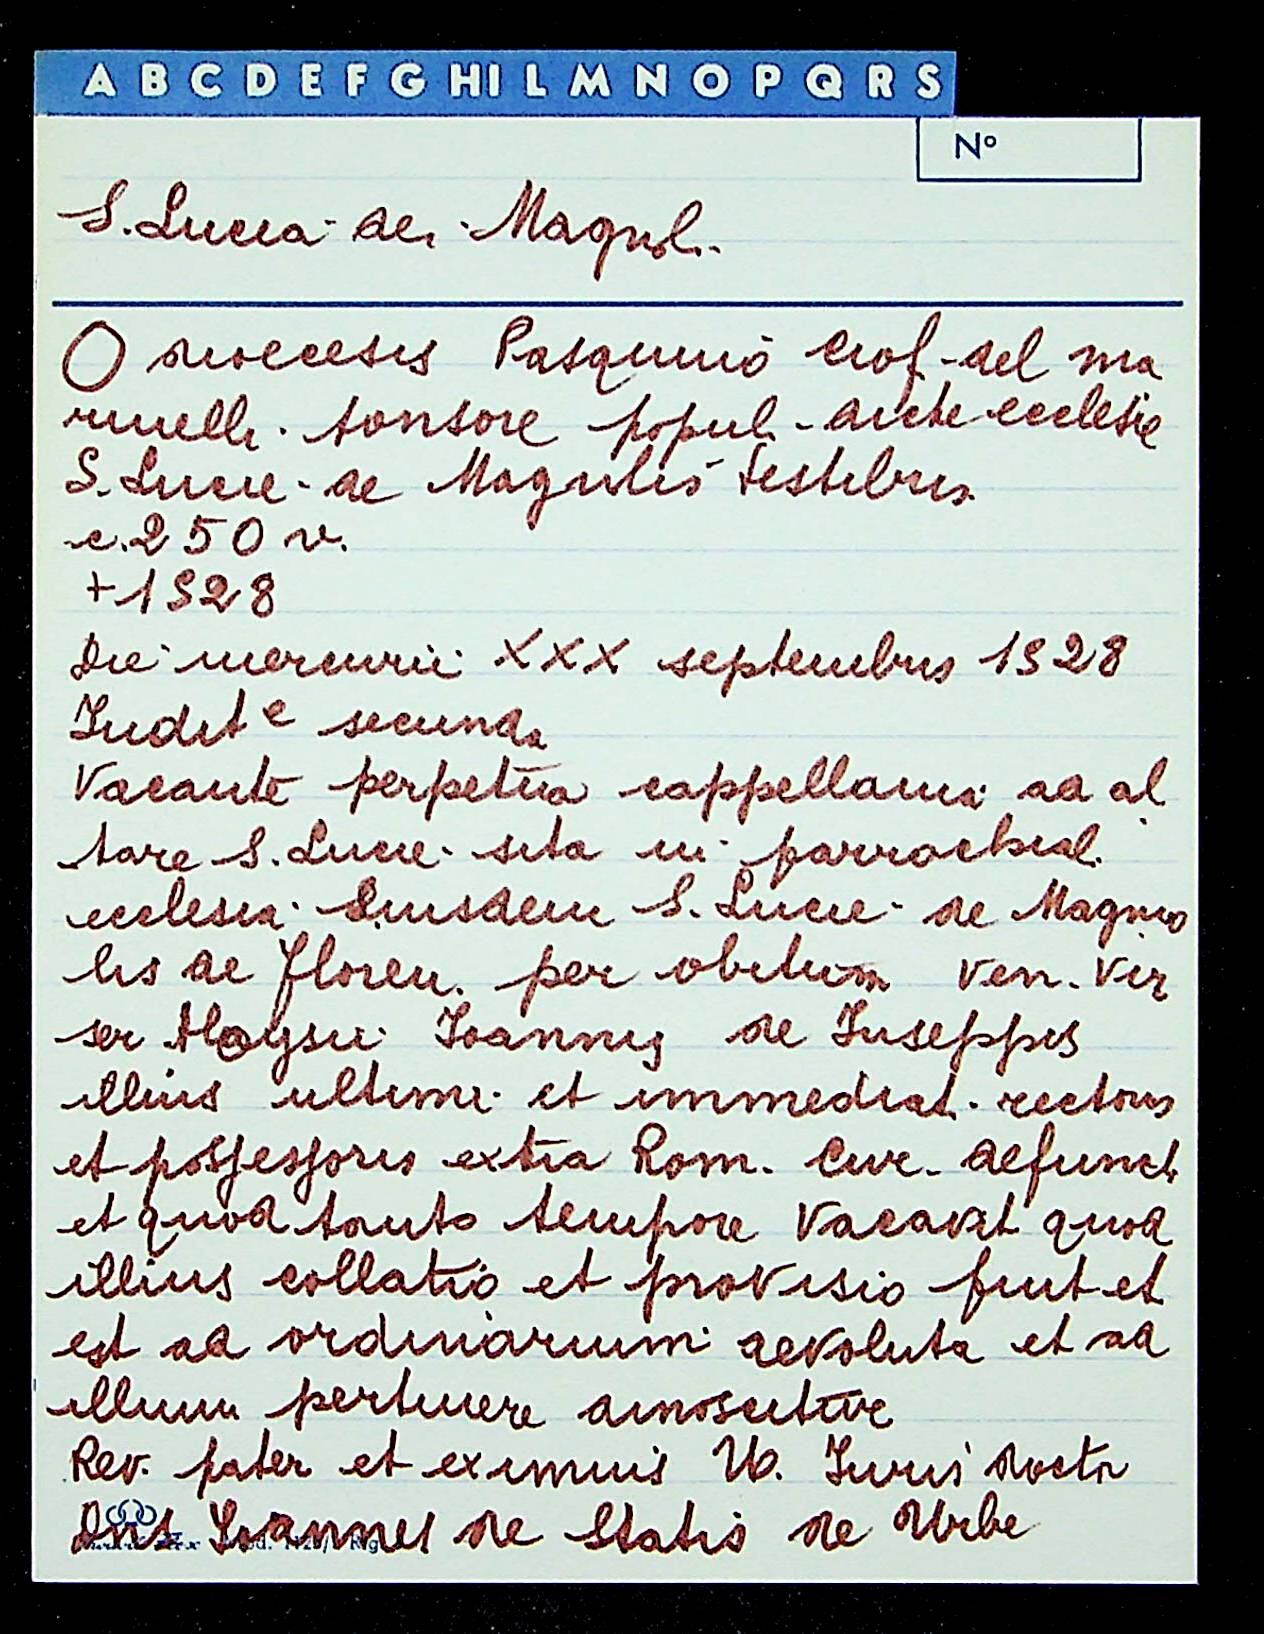 A B C D E F G H I L M N O P Q R S
Nº
S. Lucia de Magnol.
O dioecesis Pasquino Crof. del ma
rinelli. tonsore popul. dicte ecclesie
S. Lucie de Magnolis testibus
c. 250 v.
+ 1528
Die mercurii XXX septembris 1528
Indit e secunda
Vacante perpetua cappellania ad al
tare S. Lucie sita in parrochial.
ecclesia Eiusdem S. Lucie de Magno
lis de Floren. per obitum Ven. Vir
ser Aloysii Ioannis de Iuseppis
illius ultimi et immediat. rectoris
et possessoris extra Rom. Cur. defunct
et quod tanto tempore Vacavit quod
illius collatio et provisio fuit et
est ad ordinarium devoluta et ad
illum pertinere dinoscitur
Rev. pater et eximius U. Iuris doctor
Dns Ioannes de Statis de Urbe